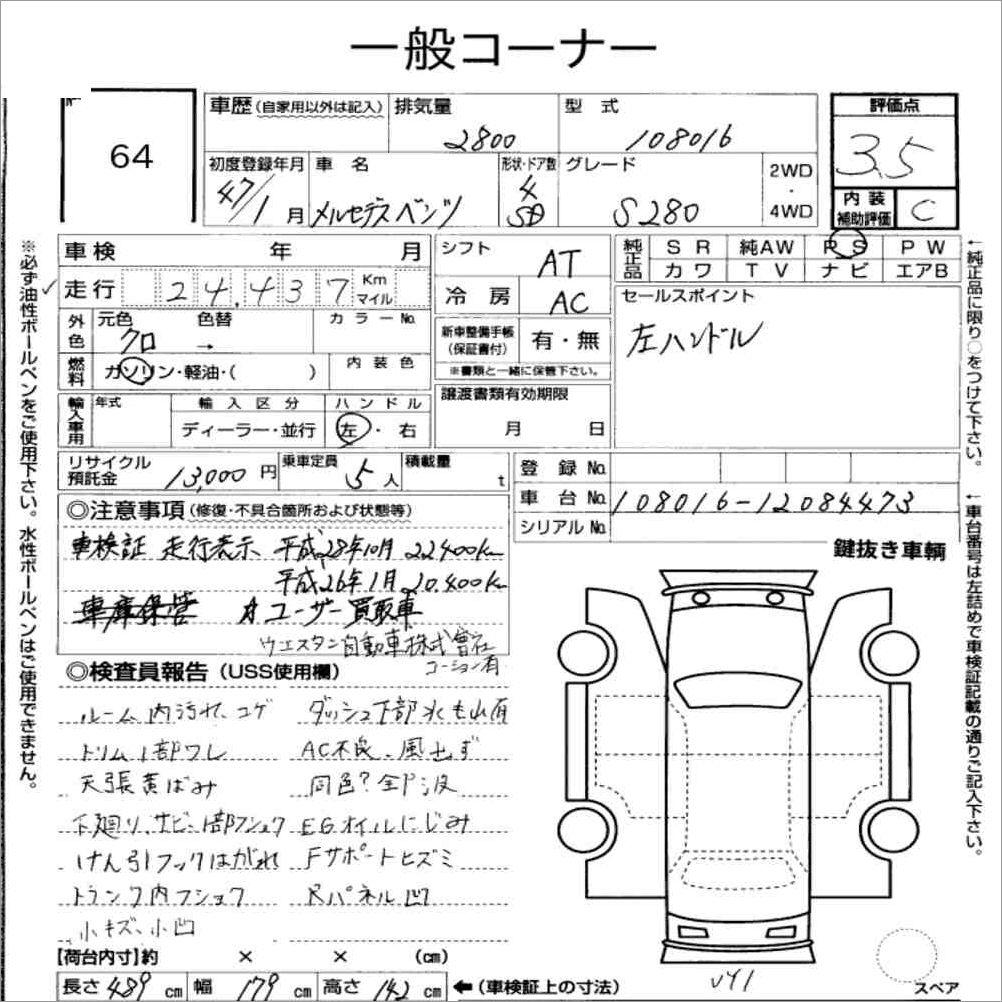 一般コーナー
64
車歴 (自家用以外は記入)
排気量
2800
型式
108016
評価点
3.5
内装補助評価 C
初度登録年月
47/1月
車名
メルセデスベンツ
形状・ドア数
4
SD
グレード
S280
2WD・4WD
車検 年 月
走行 24,437 Km マイル
外色 元色 クロ → 色替
カラーNo.
燃料 ガソリン・軽油・( )
内装色
輸入車用 年式
輸入区分 ディーラー・並行
ハンドル 左・右
シフト AT
冷房 AC
新車整備手帳(保証書付) 有・無
※書類と一緒に保管下さい。
譲渡書類有効期限
月 日
純正品 SR 純AW PS PW
カワ TV ナビ エアB
セールスポイント
左ハンドル
リサイクル預託金 13,000円
乗車定員 5人
積載量 t
登録No.
車台No. 108016-12084473
シリアルNo.
◎注意事項 (修復・不具合箇所および状態等)
車検証 走行表示 平成28年10月 22400km
平成26年1月 20.400km
車庫保管 ユーザー買取車
ウエスタン自動車株式會社
コーション有
鍵抜き車輌
◎検査員報告 (USS使用欄)
ルーム内汚れ、コゲ
ダッシュ下部
トリム1部ワレ
AC不良、風出ず
天張黄ばみ
同色?全P波
下廻り、サビ、1部フショク
EGオイルにじみ
けん引フックはがれ
Fサポートヒズミ
トランク内フショク
Rパネル凹
小キズ、小凹
【荷台内寸】約 × × (cm)
長さ 489 cm 幅 179 cm 高さ 142 cm
←(車検証上の寸法)
スペア
※必ず油性ボールペンをご使用下さい。水性ボールペンはご使用できません。
←純正品に限り○をつけて下さい。
←車台番号は左詰めで車検証記載の通りご記入下さい。